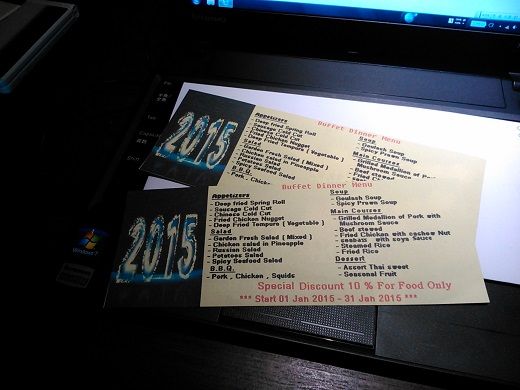 2015
Buffet Dinner Menu
Appetizers
- Deep fried Spring Roll
- Sausage Cold Cut
- Chinese Cold Cut
- Fried Chicken Nugget
- Deep Fried Tempura ( Vegetable )
Salad
- Garden Fresh Salad ( Mixed )
- Chicken salad in Pineapple
- Russian Salad
- Potatoes Salad
- Spicy Seafood Salad
B.B.Q.
- Pork , Chicken
Soup
- Goulash Soup
- Spicy Prawn Soup
Main Courses
- Grilled Medallion of
Mushroom Sauce
- Beef stewed
2015
Buffet Dinner Menu
Appetizers
- Deep fried Spring Roll
- Sausage Cold Cut
- Chinese Cold Cut
- Fried Chicken Nugget
- Deep Fried Tempura ( Vegetable )
Salad
- Garden Fresh Salad ( Mixed )
- Chicken salad in Pineapple
- Russian Salad
- Potatoes Salad
- Spicy Seafood Salad
B.B.Q.
- Pork , Chicken , Squids
Soup
- Goulash Soup
- Spicy Prawn Soup
Main Courses
- Grilled Medallion of Pork with
Mushroom Sauce
- Beef stewed
- Fried Chicken with cashew Nut
- seabass with soya Sauce
- Steamed Rice
- Fried Rice
Dessert
- Assort Thai sweet
- Seasonal Fruit
Special Discount 10 % For Food Only
*** Start 01 Jan 2015 - 31 Jan 2015 ***
Windows 7